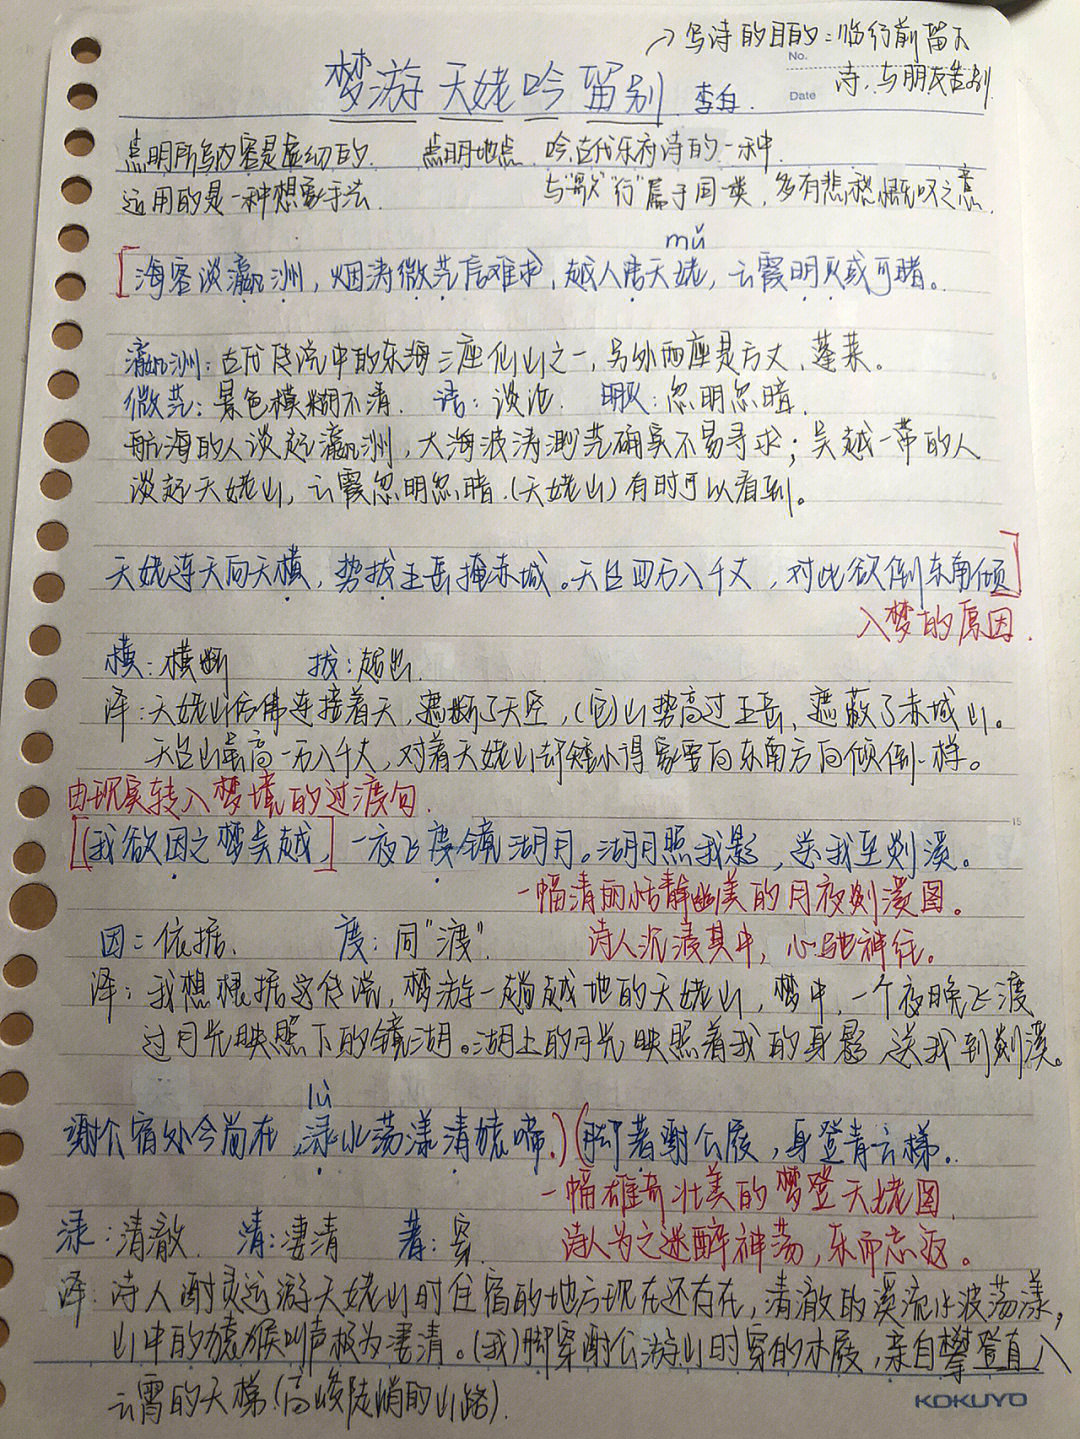 →写诗的目的：临行前留下
No.
诗，与朋友告别
Date
梦游天姥吟留别 李白.
点明所写内容是虚幻的. 点明地点. 吟：古代乐府诗的一种.
运用的是一种想象手法. 与"歌""行"属于同一类，多有悲愁慨叹之意.
mǔ
[海客谈瀛洲，烟涛微茫信难求，越人语天姥，云霞明灭或可睹。
瀛洲：古代传说中的东海三座仙山之一，另外两座是方丈、蓬莱。
微茫：景色模糊不清. 语：谈论. 明灭：忽明忽暗.
航海的人谈起瀛洲，大海波涛渺茫确实不易寻求；吴越一带的人
谈起天姥山，云霞忽明忽暗.(天姥山)有时可以看到。
天姥连天向天横，势拔五岳掩赤城。天台四万八千丈，对此欲倒东南倾]
入梦的原因.
横：横断 拔：超出.
译：天姥山仿佛连接着天，遮断了天空，(它)山势高过五岳，遮蔽了赤城山。
天台山最高一万八千丈，对着天姥山却矮小得象要向东南方向倾倒一样。
由现实转入梦境的过渡句.
[(我欲因之梦吴越，]一夜飞度镜湖月。湖月照我影，送我至剡溪。
一幅清丽恬静幽美的月夜剡溪图。
因：依据. 度：同"渡". 诗人沉浸其中，心驰神往。
译：我想根据这传说，梦游一趟越地的天姥山，梦中，一个夜晚飞渡
过月光映照下的镜湖。湖上的月光映照着我的身影 送我到剡溪。
lù
谢公宿处今尚在，渌水荡漾清猿啼.)(脚著谢公屐，身登青云梯.
一幅雄奇壮美的梦登天姥图.
渌：清澈. 清：凄清 著：穿. 诗人为之迷醉神荡，乐而忘返。
译：诗人谢灵运游天姥山时住宿的地方现在还存在，清澈的溪流水波荡漾，
山中的猿猴叫声极为凄清。(我)脚穿谢公游山时穿的木屐，亲自攀登直入
云霄的天梯(高峻陡峭的山路).
KOKUYO